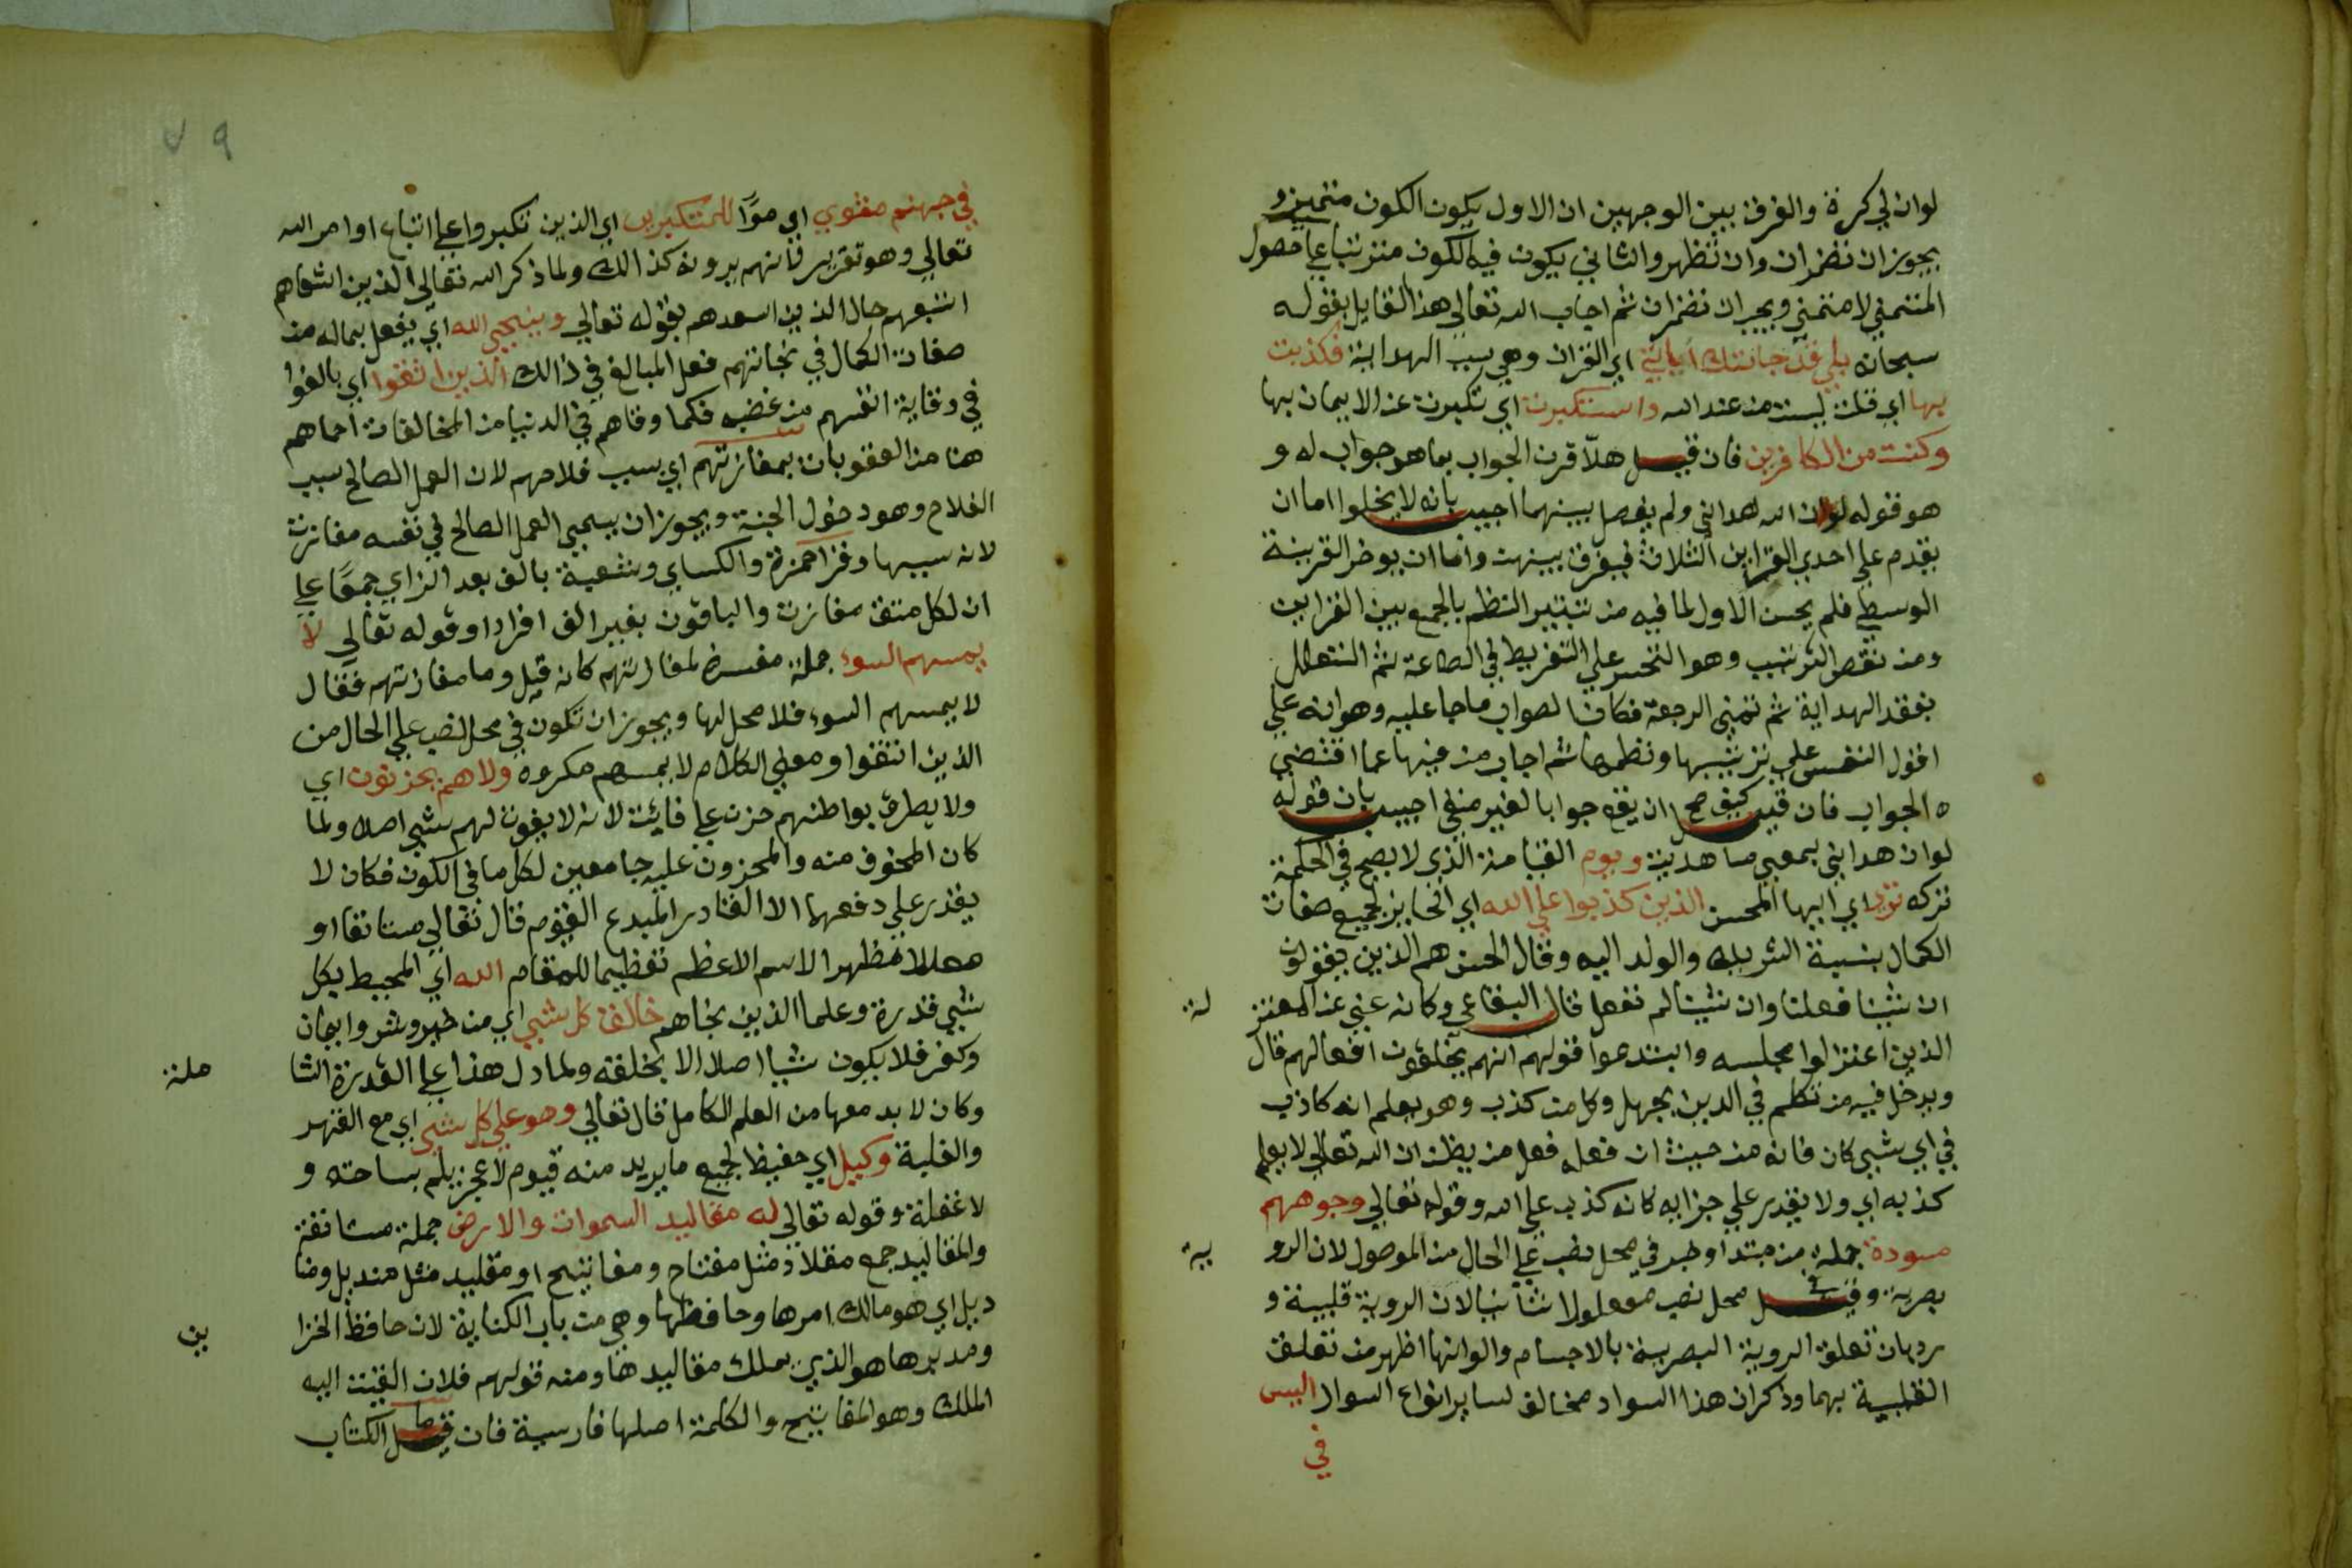 لوان لي كرة والفرق بين الوجهين ان الاول يكون الكون متمنيز و
يجوز ان تضمر ان وان تظهر والثاني يكون فيه الكون مترتبا علي حصول
المتمني لا متمني ويجب ان تضمر ان ثم اجاب الله تعالي هذا القايل بقوله
سبحانه بلي قد جاتك اياتي اي القران وهي سبب الهداية فكذبت
بها اي قلت ليست من عند الله واستكبرت اي تكبرت عن الايمان بها
وكنت من الكافرين فان قيل هلا قرن الجواب بما هو جواب له و
هو قوله لوان الله هداني ولم يفصل بينهما اجيب بانه لا يخلوا اما ان
يقدم علي احدي القراين الثلاث فيفرق بينهن واما ان يوخر القرينة
الوسطي فلم يحسن الاول لما فيه من تبتير النظم بالجمع بين القراين
ومن نقص الترتيب وهو التحسر علي التفريط في الطاعة ثم التعلل
بفقد الهداية ثم تمني الرجعة فكان الصواب ما جا عليه وهو انه علي
اقول النفس علي ترتيبها ونظمها ثم اجاب من فيها عما اقتضي
ه الجواب فان قيل كيف صح ان يقع جوابا لغير منفي اجيب بان قوله
لوان هداني بمعني ما هديت ويوم القيامة الذي لا يصح في الحكمة
تركه تري اي ايها المحسن الذين كذبوا علي الله اي الحايز لجميع صفات
الكمال بنسبة الشريك والولد اليه وقال الحسن هم الذين يقولون
ان شينا فعلنا وان شينا لم نفعل قال البقاعي وكانه عني عن المعتز
لة
الذين اعتزلوا مجلسه وابتدعوا قولهم انهم يخلقون افعالهم قال
ويدخل فيه من تكلم في الدين بجهل وكل من كذب وهو يعلم انه كاذب
في اي شيي كان فانه من حيث ان فعله فعل من يظن ان الله تعالي لا يعلم
كذبه اي ولا يقدر علي جزايه كانه كذب علي الله وقوله تعالي وجوههم
مسودة جملة من مبتدا وخبر في محل نصب علي الحال من الموصول لان الرو
ية
بصرية وقيل في محل نصب مفعولا ثانيا لان الروية قلبية و
رد بان تعلق الروية البصرية بالاجسام والوانها اظهر من تعلق
القلبية بهما وذكر ان هذا السواد مخالف لساير انواع السواد اليس
في
في جهنم مثوي اي ماوا للمتكبرين اي الذين تكبروا علي اتباع اوامر الله
تعالي وهو تقرير فانهم يرونه كذالك ولما ذكر الله تعالي الذين اشقاهم
اتبعهم حال الذين اسعدهم بقوله تعالي وينجي الله اي يفعل بماله من
صفات الكمال في نجاتهم فعل المبالغ في ذالك الذين اتقوا اي بالغوا
في وقاية انفسهم من غضبه فكما وقاهم في الدنيا من المخالفات احماهم
هنا من العقوبات بمفازتهم اي بسبب فلاحهم لان العمل الصالح سبب
الفلاح وهو دخول الجنة ويجوز ان يسمي العمل الصالح في نفسه مفازت
لانه سببها وقرا حمزة والكساي وشعبة بالف بعد الزاي جمعا علي
ان لكل متق مفازت والباقون بغير الف افرادا وقوله تعالي لا
يمسهم السوء جملة مفسرة لمفازتهم كانه قيل وما مفازتهم فقال
لا يمسهم السوء فلا محل لها ويجوز ان تكون في محل نصب علي الحال من
الذين اتقوا ومعني الكلام لا يمسهم مكروه ولا هم يحزنون اي
ولا يطرق بواطنهم حزن علي فايت لانه لا يفوت لهم شيي اصلا ولما
كان المخوف منه والمحزون عليه جامعين لكل ما في الكون فكان لا
يقدر علي دفعهما الا القادر المبدع القيوم قال تعالي مستانفا او
معللا مظهرا الاسم الاعظم تعظيما للمقام الله اي المحيط بكل
شيي قدرة وعلما الذين نجاهم خالق كل شيي اي من خير وشر وايمان
وكفر فلا يكون شيا اصلا الا بخلقه ولما دل هذا علي القدرة الشا
ملة
وكان لا بد معها من العلم الكامل قال تعالي وهو علي كل شيي اي مع القهر
والغلبة وكيل اي حفيظ لجميع ما يريد منه قيوم لا عجز يلم بساحته و
لا غفلة وقوله تعالي له مقاليد السموات والارض جملة مستانفة
والمقاليد جمع مقلاد مثل مفتاح ومفاتيح او مقليد مثل منديل ومنا
ديل اي هو مالك امرها وحافظها وهي من باب الكناية لان حافظ الخزا
ين
ومدبرها هو الذي يملك مقاليدها ومنه قولهم فلان القيت اليه
الملك وهو المفاتيح والكلمة اصلها فارسية فان قيل الكتاب